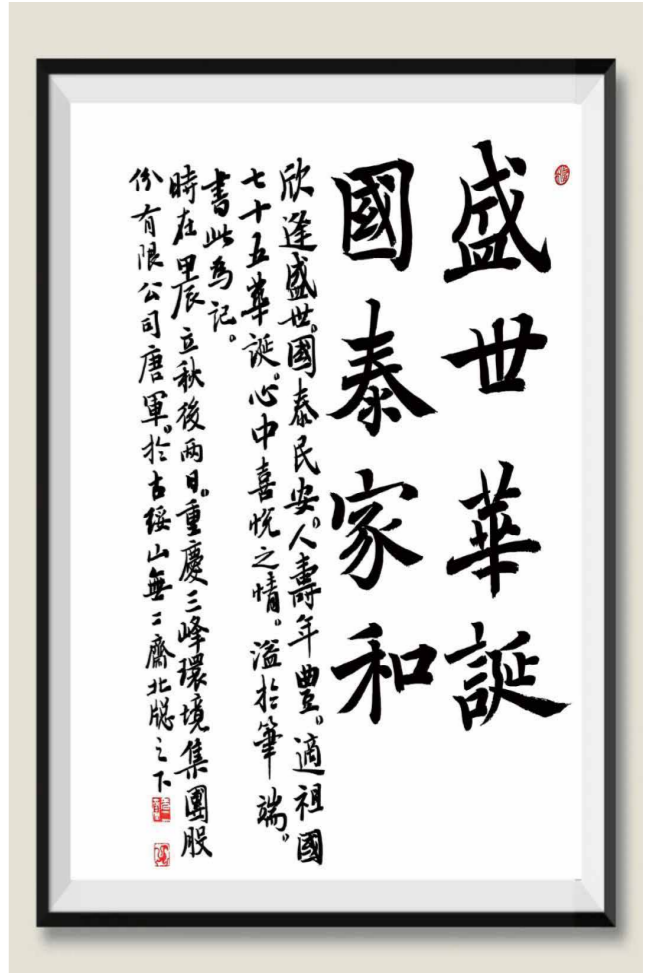 盛世華誕
國泰家和
欣逢盛世。國泰民安。人壽年豊。適祖國
七十五華誕。心中喜悅之情。溢於筆端。
書此為記。
時在甲辰立秋後兩日。重慶三峰環境集團股
份有限公司唐軍。於古綏山無二齋北牕之下